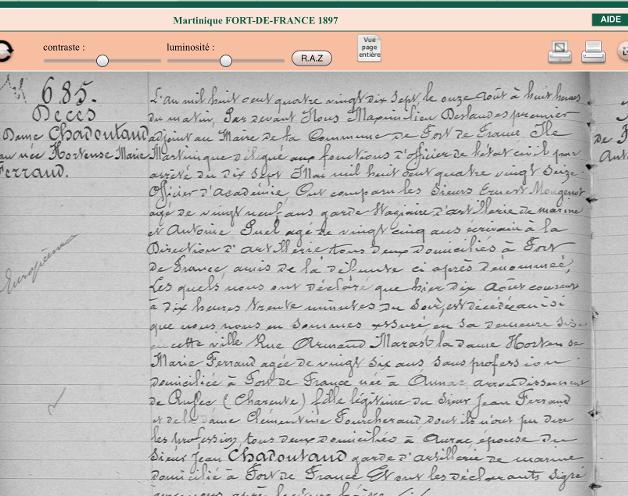 Martinique FORT-DE-FRANCE 1897
AIDE
contraste :
luminosité :
R.A.Z
Vue
page
entière
685.
Décès
Dame Chadoutaud
née Hortense Marie
Ferraud.
Européenne
L'an mil huit cent quatre vingt dix sept, le onze Août à huit heures
du matin, Par devant Nous Maximilien Deslandes premier
adjoint au Maire de la Commune de Fort de France Ile
Martinique délégué aux fonctions d'officier de l'état civil par
arrêté du dix sept Mai mil huit cent quatre vingt seize
Officier d'Académie Ont comparu les Sieurs Ernest Mougenot
agé de vingt neuf ans garde stagiaire d'artillerie de marine
et Antoine agé de vingt cinq ans écrivain à la
Direction d'artillerie tous deux domiciliés à Fort
de France, amis de la défunte ci après dénommée,
Les quels nous ont déclaré que hier dix Aout courant
à dix heures trente minutes du soir, est décédée ainsi
que nous nous en sommes assuré en sa demeure sise
en cette ville Rue Armand Marast la dame Hortense
Marie Ferraud agée de vingt six ans sans profession
domiciliée à Fort de France née à arrondissement
de Ruffec (Charente) fille légitime du Sieur Jean Ferraud
et de la dame Clémentine Foucheraud dont ils n'ont pu dire
les profession, tous deux domiciliés à épouse du
Sieur Jean Chadoutaud garde d'artillerie de marine
domicilié à Fort de France Et ont les déclarants signé
avec nous après lecture faite